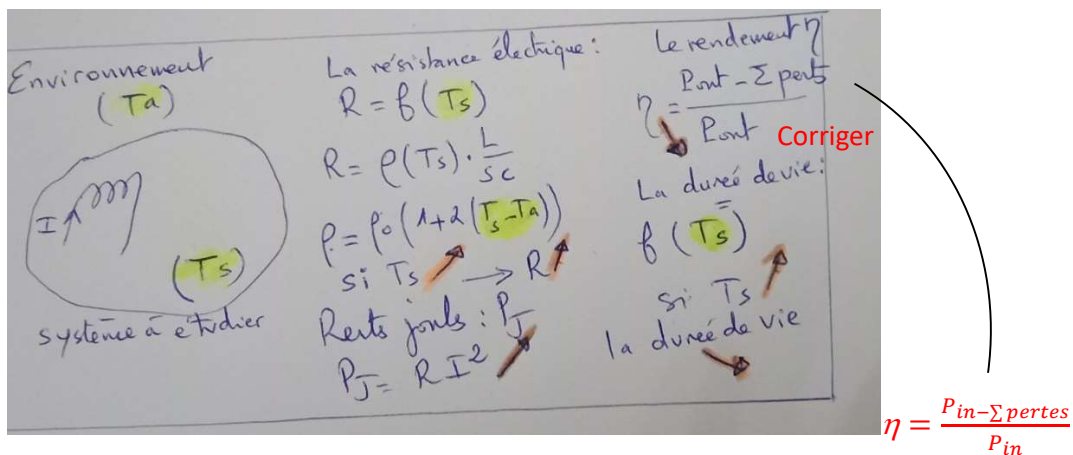 Environnement
(Ta)
I
(Ts)
système à etudier
La résistance électrique :
R = f(Ts)
R = ρ(Ts) . L/Sc
ρ = ρ0(1+α(Ts-Ta))
si Ts → R
Perts jouls : PJ
PJ = R I²
Le rendement η
η = (Pont - Σ perts)/Pont
Corriger
La dureé de vie :
f(Ts)
si Ts
la dureé de vie
η = (Pin-Σ pertes)/Pin